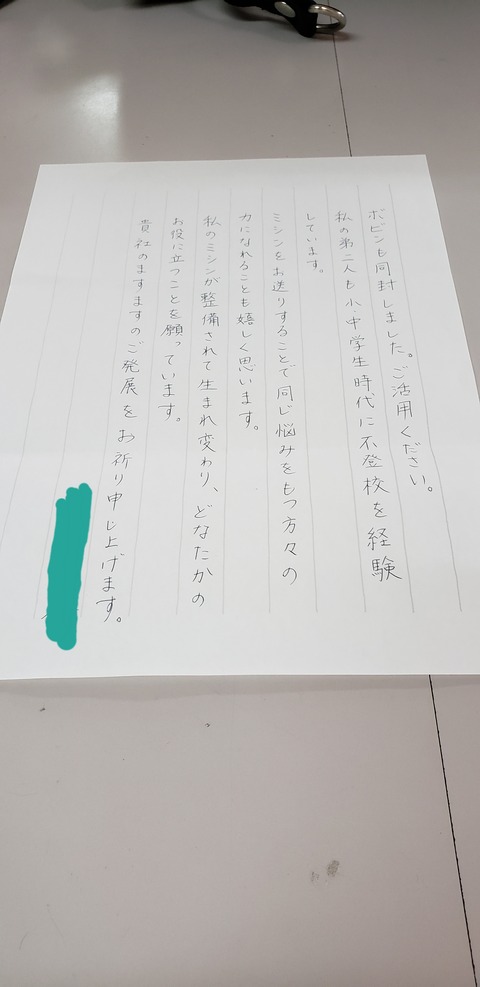 ボビンも同封しました。ご活用ください。
私の弟二人も小・中学生時代に不登校を経験
しています。
ミシンをお送りすることで同じ悩みをもつ方々の
力になれることも嬉しく思います。
私のミシンが整備されて生まれ変わり、どなたかの
お役に立つことを願っています。
貴社のますますのご発展をお祈り申し上げます。